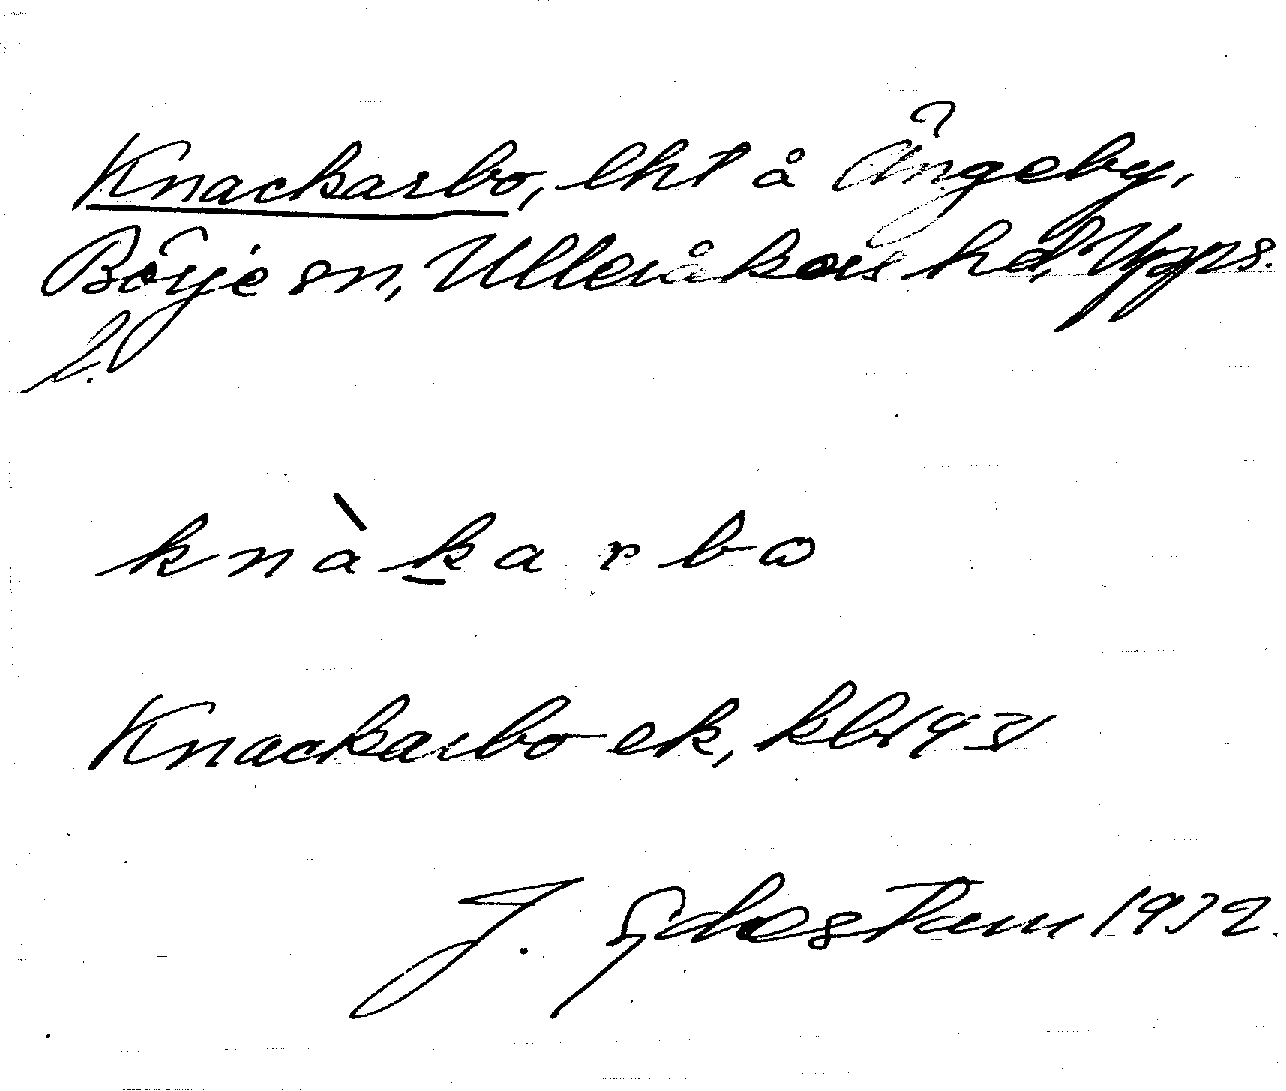 Knackarbo, lht å Ängeby,
Börje sn, Ulleråkers hd, Upps.
l.
knàkarbo
Knackarbo ek, kbl 931
J. Sahlstam 1932.